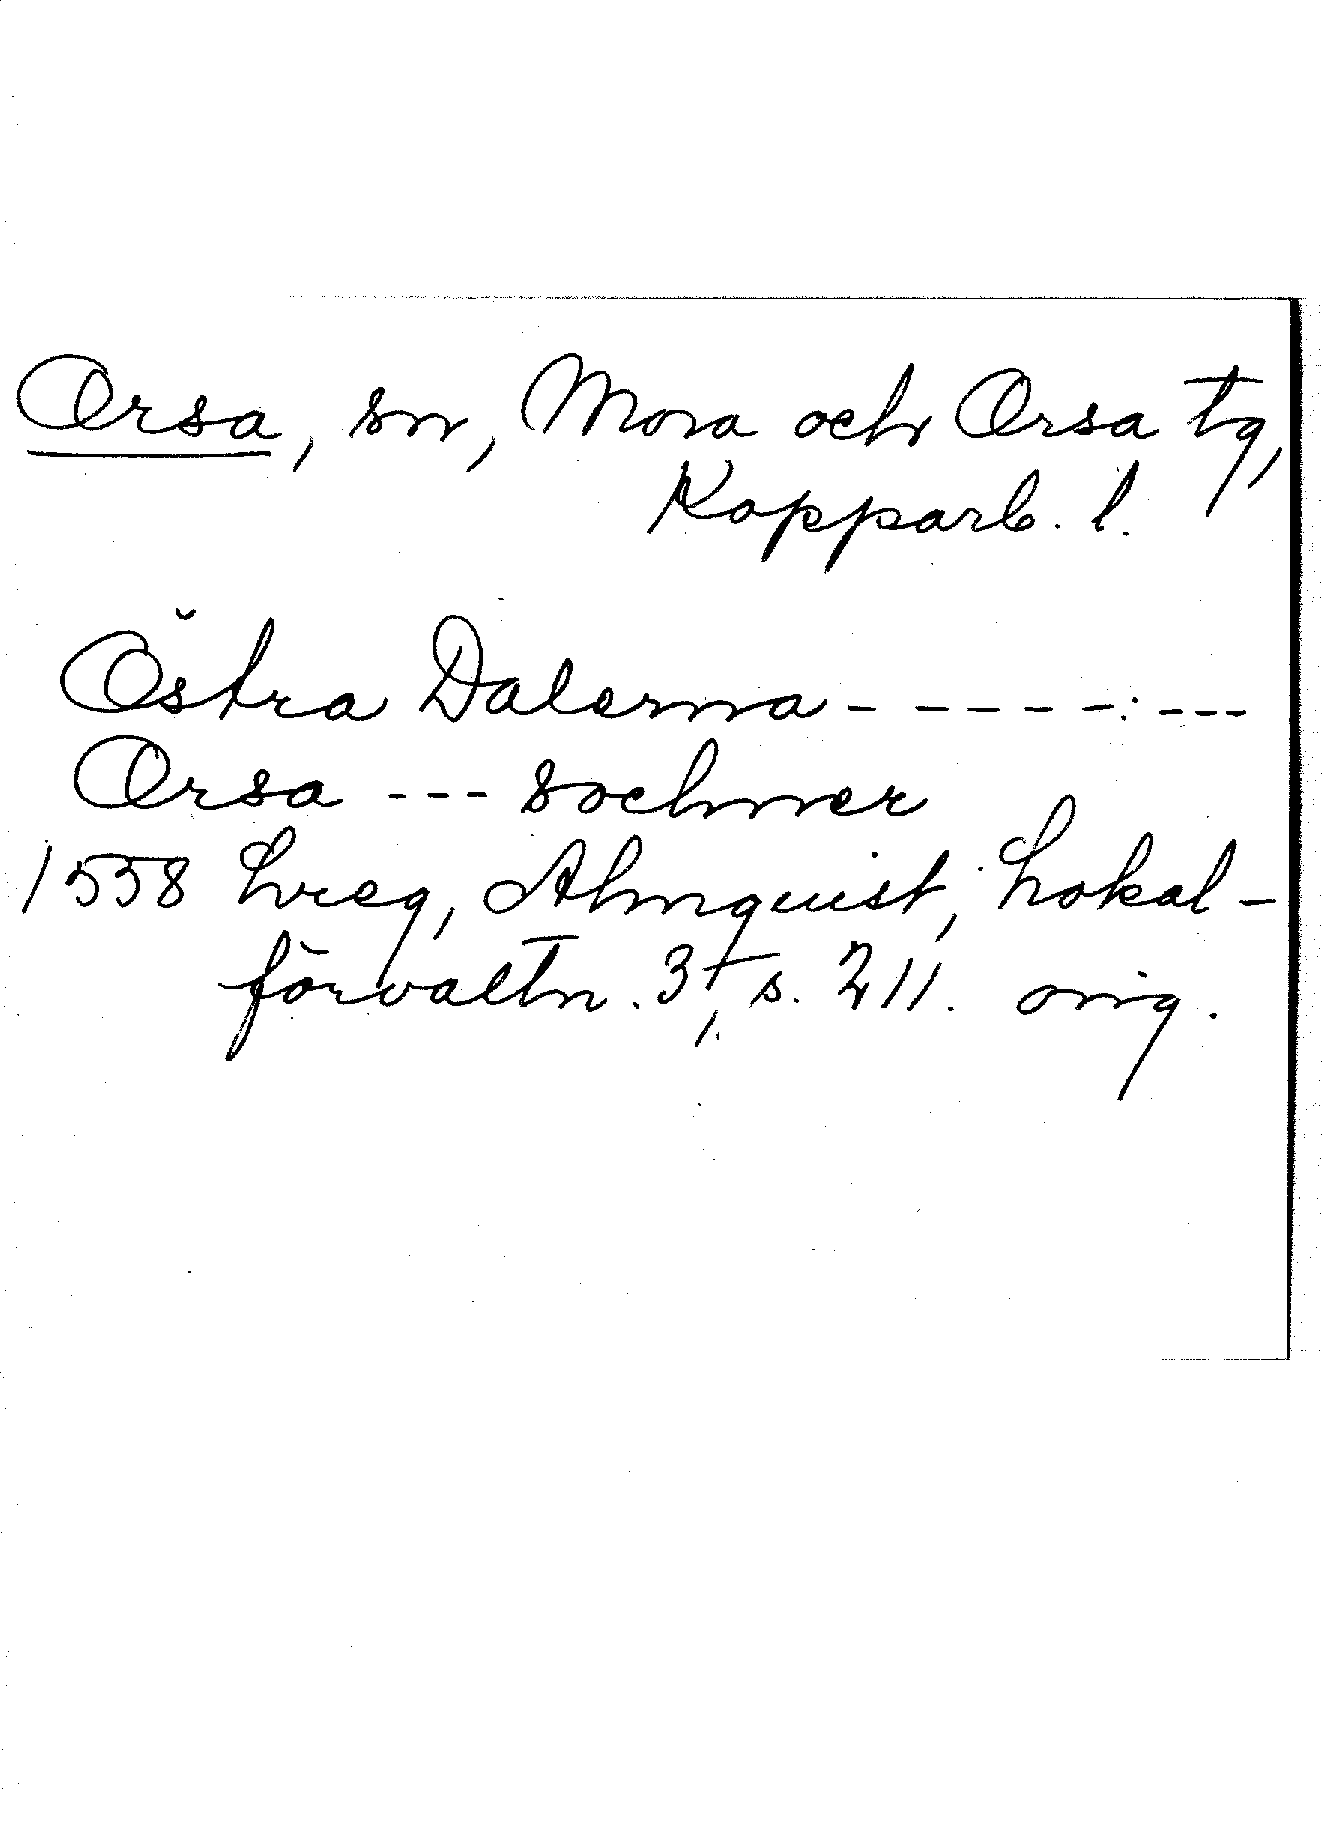 Orsa, sn, Mora och Orsa tg,
Kopparb. l.
Östra Dalerna - - - - - : - - -
Orsa - - - sochnner
1558 Lvreg, Almquist, Lokal-
förvaltn. 3, s. 211. orig.